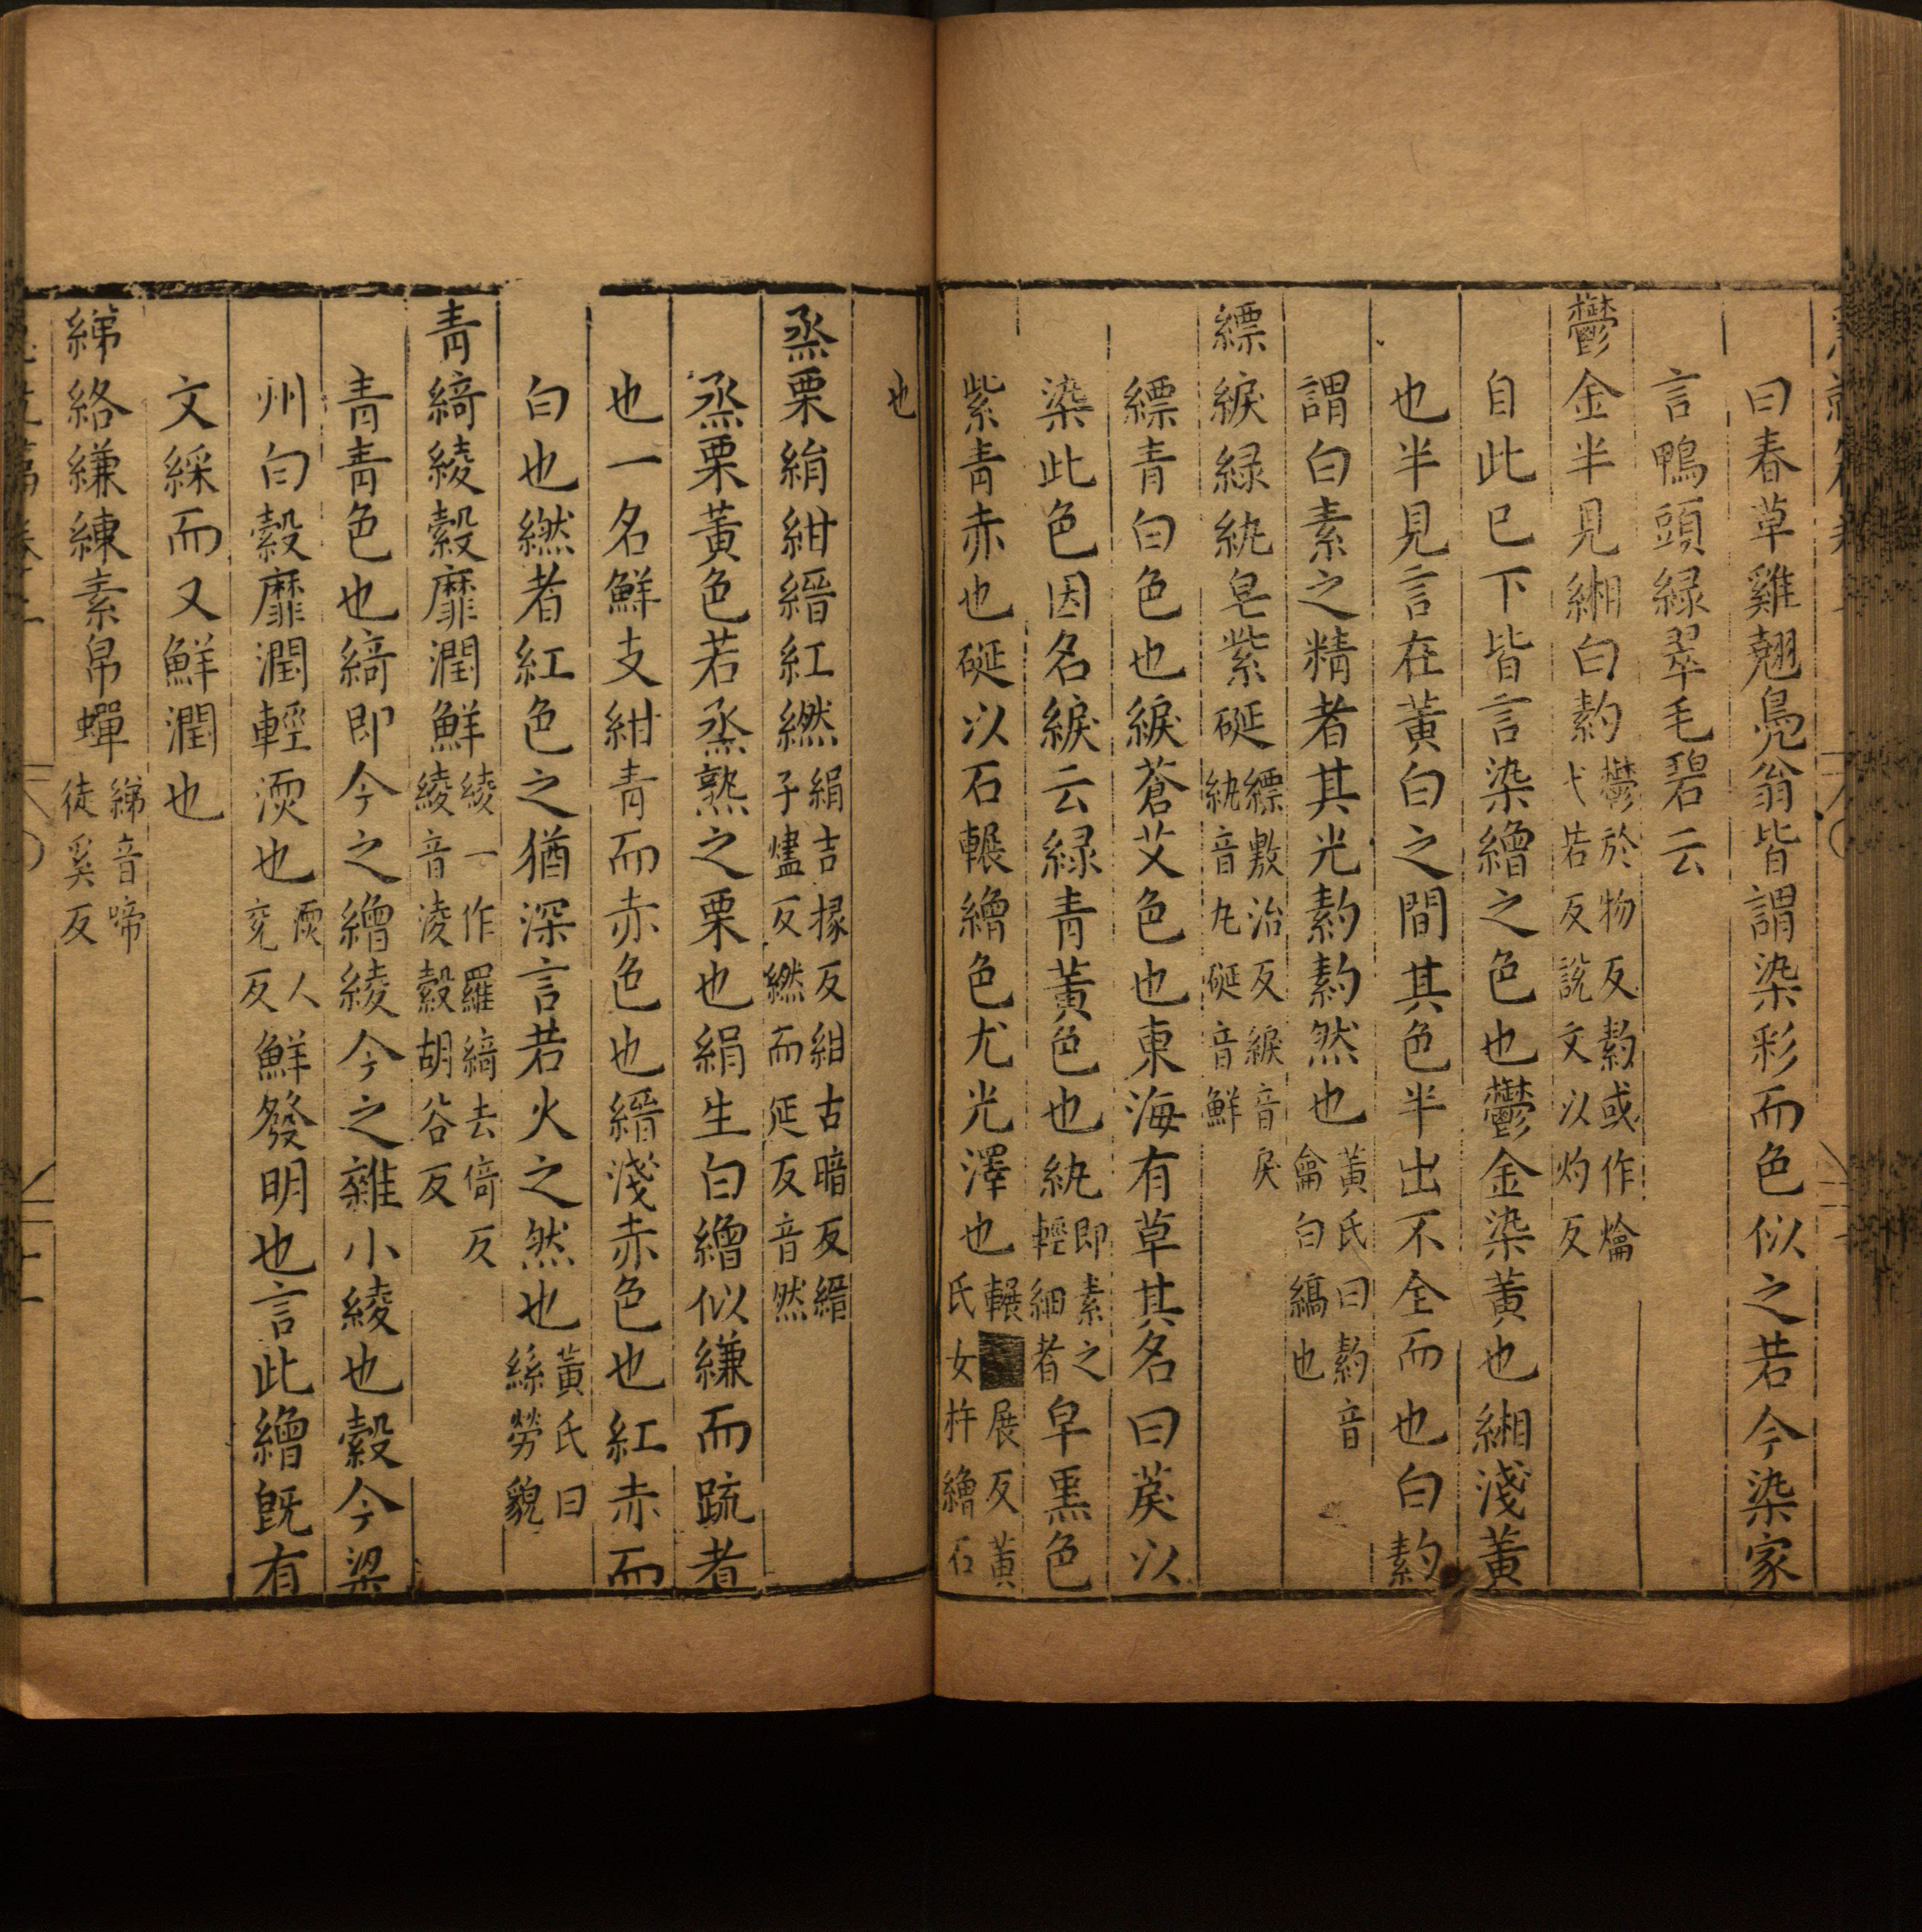 曰春草雞翹鳧翁皆謂染彩而色似之若今染家
言鴨頭緑翠毛碧云
鬱金半見緗白䋤鬱於物反䋤或作爚弋若反說文以灼反
自此已下皆言染繒之色也鬱金染黃也緗淺黃
也半見言在黃白之間其色半出不全而也白䋤
謂白素之精者其光䋤䋤然也黃氏曰䋤音龠白縞也
縹綟緑紈皂紫硟縹敷沼反綟音戾紈音丸硟音鮮
縹青白色也綟蒼艾色也東海有草其名曰莀以
染此色因名綟云緑青黃色也紈即素之輕細者皁黒色
紫青赤也硟以石輾繒色尤光澤也輾展反黃氏女杵繒石
也
烝栗絹紺縉紅繎絹吉掾反紺古暗反縉子燼反繎而延反音然
烝栗黃色若烝熟之栗也絹生白繒似縑而疏者
也一名鮮支紺青而赤色也縉淺赤色也紅赤而
白也繎者紅色之猶深言若火之然也黃氏曰絲勞貌
青綺綾縠靡潤鮮綾一作羅綺去倚反綾音淩縠胡谷反
青青色也綺即今之繒綾今之雜小綾也縠今梁
州白縠靡潤輕渜也渜人兗反鮮發明也言此繒旣有
文綵而又鮮潤也
綈絡縑練素帛蟬綈音啼徒奚反